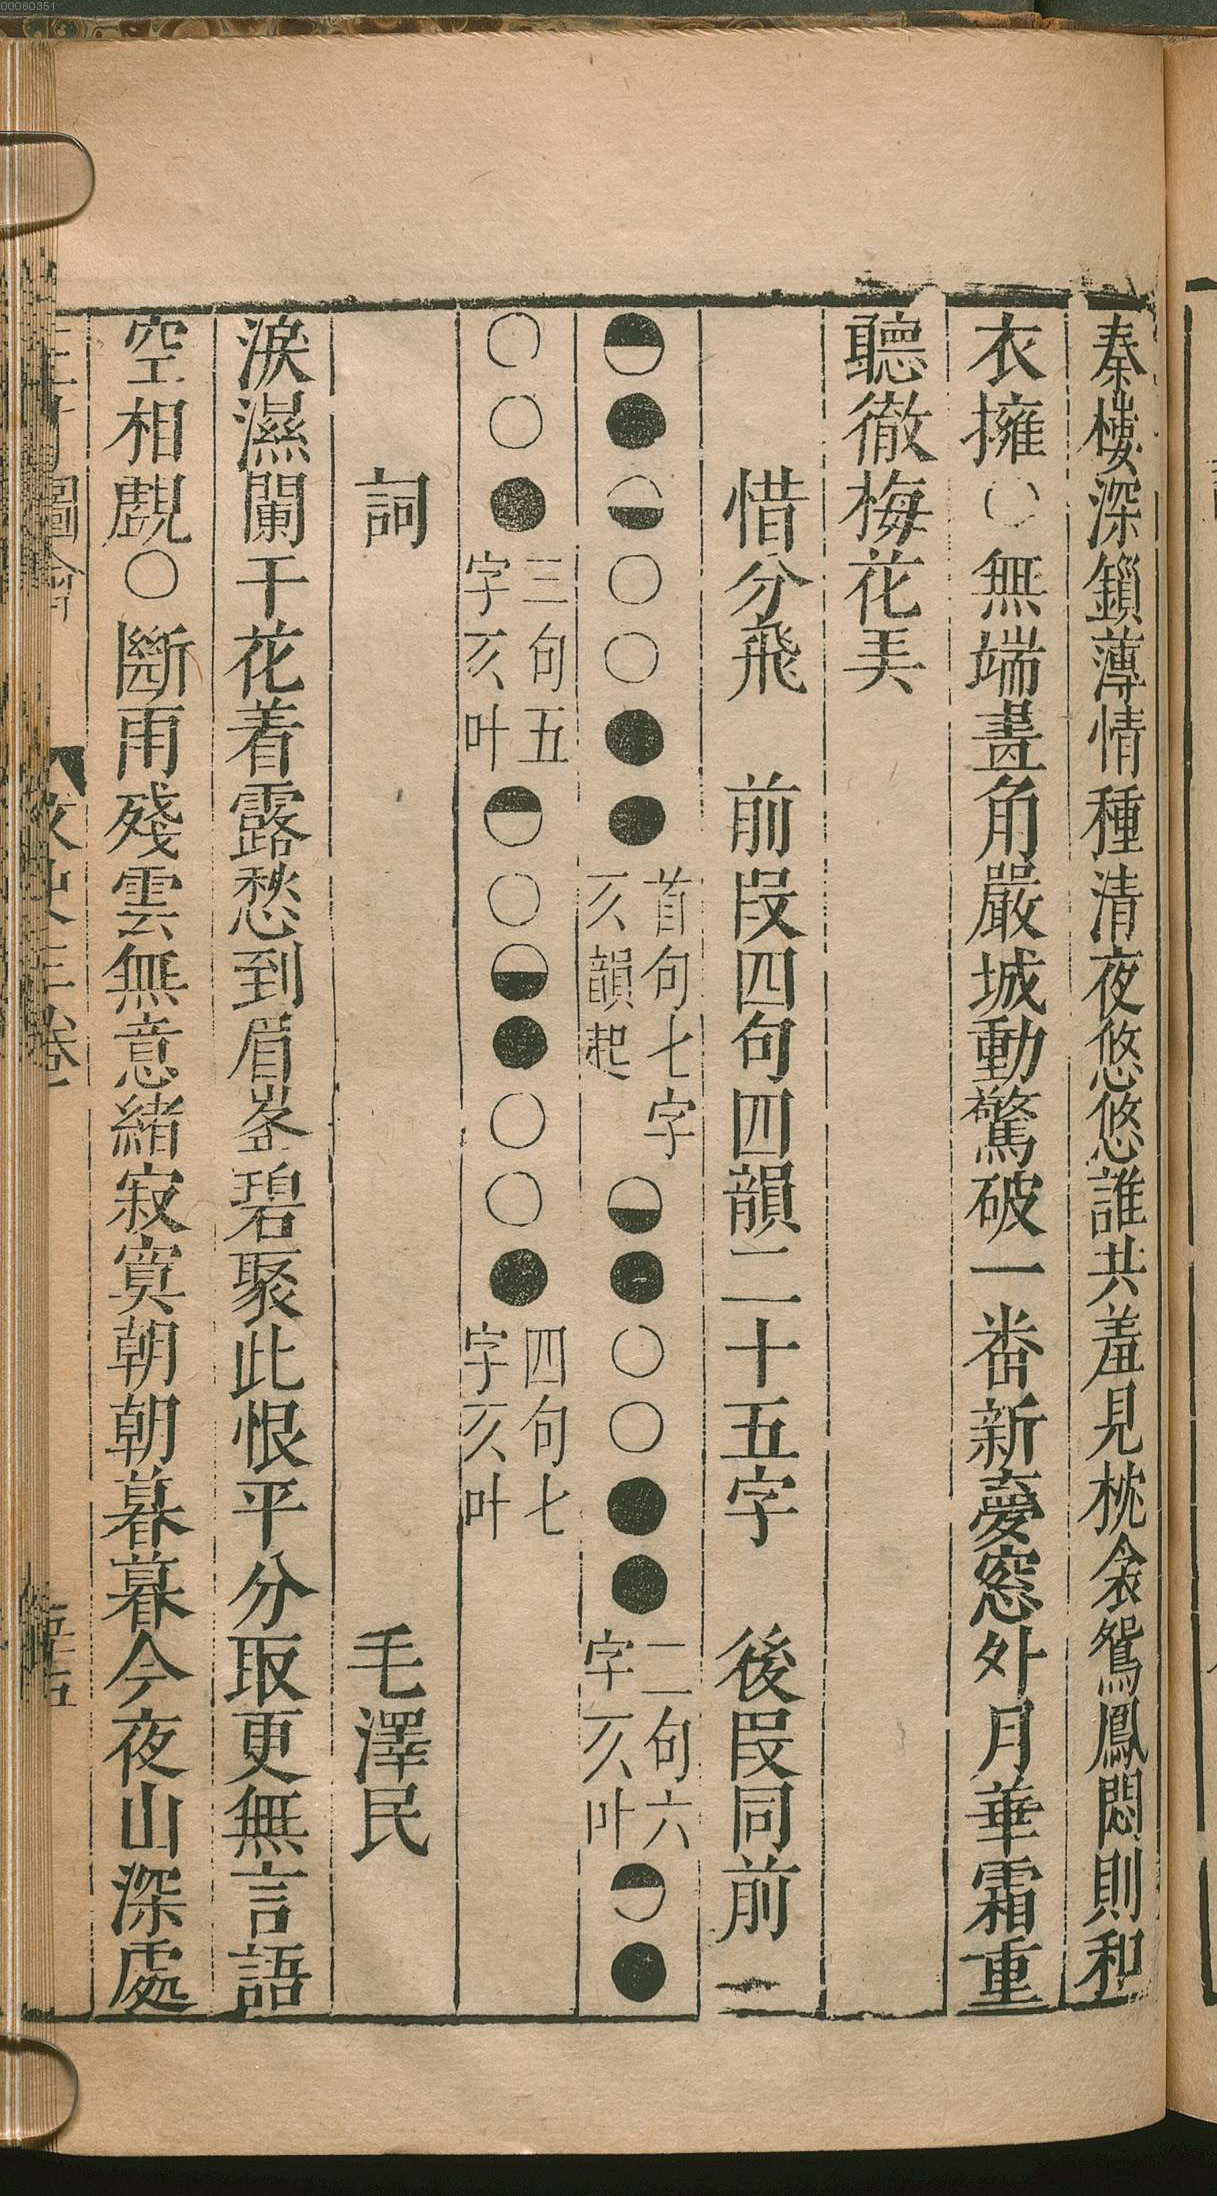 秦樓深鎻薄情種清夜悠悠誰共羞見枕衾鴛鳳悶則和
衣擁○無端畫角嚴城動驚破一畨新夢窓外月華霜重
聽徹梅花弄
惜分飛 前段四句四韻二十五字 後段同前
◓●◒○○●●首句七字仄韻起◒●○○●●二句六字仄叶◓●
○○●三句五字仄叶◓○◒●○○●四句七字仄叶
詞 毛澤民
淚濕闌干花着露愁到眉峯碧聚此恨平分取更無言語
空相覷○斷雨殘雲無意緒寂寞朝朝暮暮今夜山深處
圖會 文史三卷
00060351